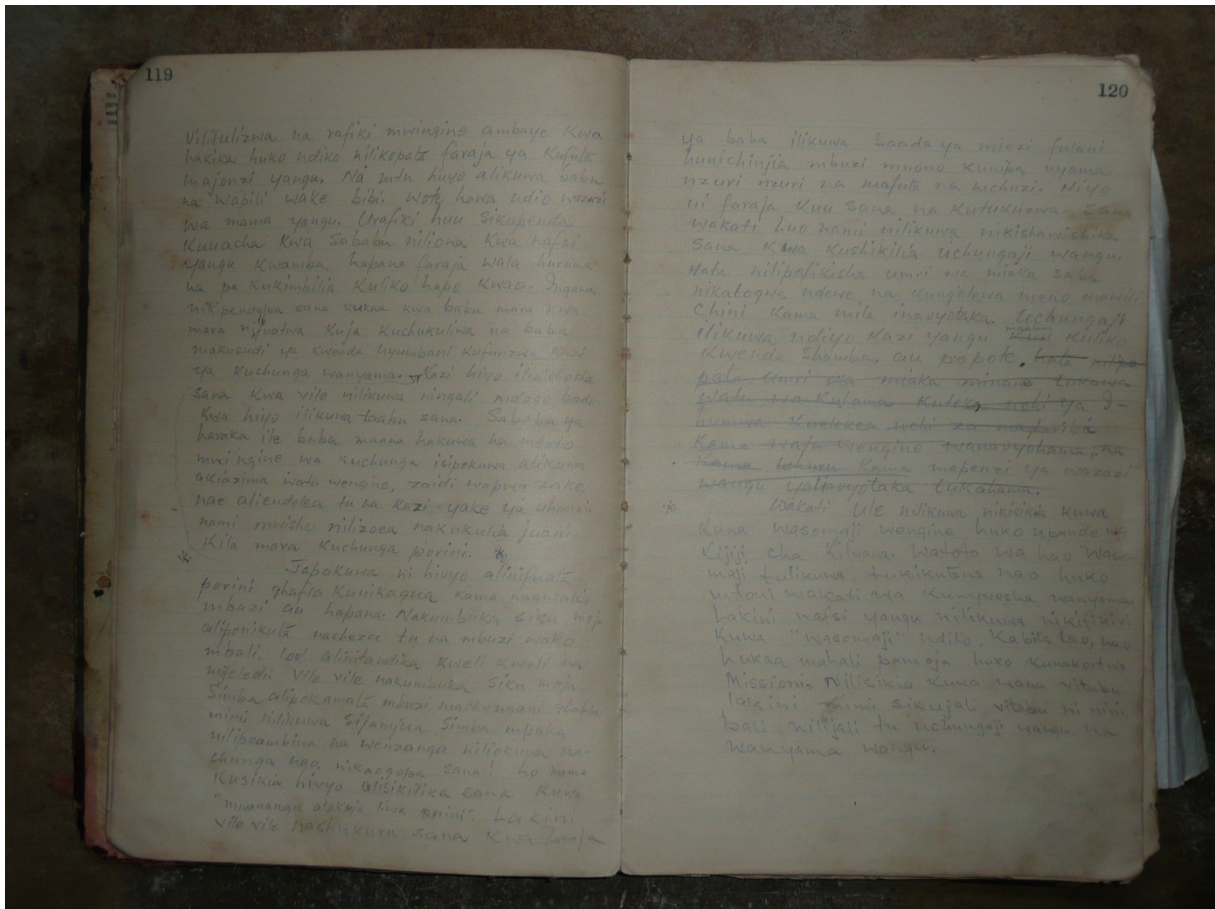 119
vilitulizwa na rafiki mwingine ambaye kwa
hakika huko ndiko nilikopata faraja ya kufuta
majonzi yangu. Na mtu huyo alikuwa babu
na wapili wake bibi. Wote hawa ndio wazazi
wa mama yangu. Urafiki huu sikupenda
kuuacha kwa sababu niliona kwa nafsi
yangu kwamba, hapana faraja wala huruma
na pa kukimbilia kuliko hapo kwao. Ingawa
nikipendelea sana kukaa kwa babu mara kwa
mara kuja kuchukuliwa na baba
makusudi ya kwenda nyumbani kufunzwa kazi
ya kuchunga wanyama. Kazi hiyo ilinichosha
sana kwa vile nilikuwa ningali mdogo bado
kwa hiyo ilikuwa taabu sana. Sababu ya
haraka ile baba maana hakuwa na mtoto
mwingine wa kuchunga isipokuwa alikuwa
akiazima watu wengine, zaidi wapwa zake,
nae aliendelea tu na kazi yake ya uhunzi.
nami mwisho nilizoea nakukulia juani
kila mara kuchunga porini. *
* Japokuwa ni hivyo alinifuata
porini ghafla kunikagua kama nagngalia
mbuzi au hapana. Nakumbuka siku moja
aliponikuta nacheza tu na mbuzi wako
mbali, loo! alinitandika kweli kweli na
Vile vile nakumbuka siku moja
Simba alipokamata mbuzi machungani ghafla
mimi nilikuwa sijamjua Simba mpaka
nilipoambiwa na wenzangu niliokuwa na-
chunga nao, nikaogopa sana! no mama
kusikia hivyo alisikitika sana kuwa
"mwanangu atakuja liwa porini". Lakini
vile vile nashukuru sana kwa faraja
120
ya baba ilikuwa baada ya miezi fulani
hunichinjia mbuzi mnono kunipa nyama
nzuri nzuri na mafuta na mchuzi. Niyo
ni faraja kuu sana na kutukuzwa sana
wakati huo nami nilikuwa nikishawishika
sana kwa kushikilia uchungaji wangu.
Hata nilipofikisha umri wa miaka saba
nikatogwa ndewe na kung'olewa meno mawili
chini kama mila inavyotaka. Uchungaji
ilikuwa ndiyo kazi yangu kuliko
kwenda shamba au popote. hata nilipo
pata umri wa miaka minane tukawa
watu wa kuhama kutoka nchi ya I-
kuelekea nchi za
kama wengine wanavyohama, na
kama kama mapenzi ya wazazi
wangu yalivyotaka tukahama.
* Wakati ule nilikuwa nikisikia kuwa
kuna wasomaji wengine huko upande wa
kijiji cha Watoto wa hao waso-
maji tulikuwa tukikutana nao huko
mtoni wakati wa kumwesha wanyama.
Lakini nafsi yangu nilikuwa nikifikiri
kuwa "wasomaji" ndilo kabila lao, nao
hukaa mahali pamoja huko
Missioni. Nilisikia kuwa wana vitabu
lakini mimi sikujali vitabu ni nini
bali nilijali tu uchungaji wangu na
wanyama wangu.